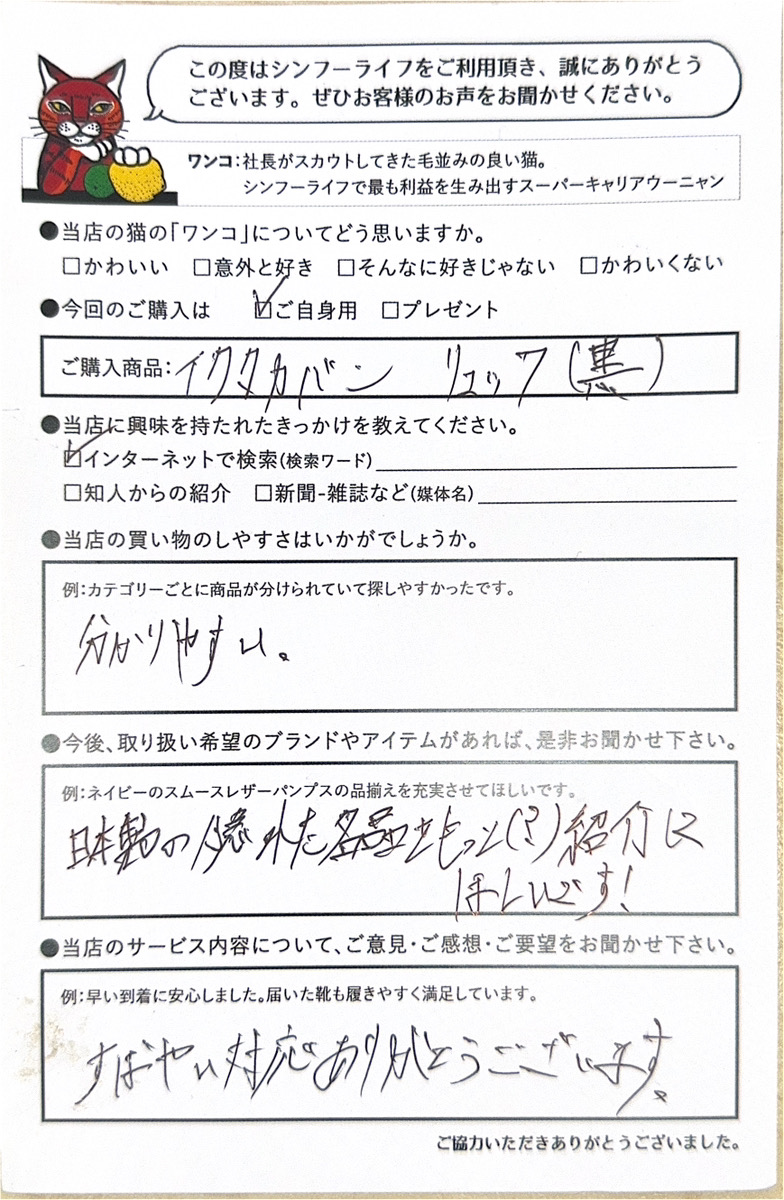 この度はシンフーライフをご利用頂き、誠にありがとう
ございます。ぜひお客様のお声をお聞かせください。
ワンコ:社長がスカウトしてきた毛並みの良い猫。
シンフーライフで最も利益を生み出すスーパーキャリアウーニャン
●当店の猫の「ワンコ」についてどう思いますか。
□かわいい □意外と好き □そんなに好きじゃない □かわいくない
●今回のご購入は ☑ご自身用 □プレゼント
ご購入商品:イクタカバン リュック(黒)
●当店に興味を持たれたきっかけを教えてください。
☑インターネットで検索(検索ワード)
□知人からの紹介 □新聞-雑誌など(媒体名)
●当店の買い物のしやすさはいかがでしょうか。
例:カテゴリーごとに商品が分けられていて探しやすかったです。
分かりやすい。
●今後、取り扱い希望のブランドやアイテムがあれば、是非お聞かせ下さい。
例:ネイビーのスムースレザーパンプスの品揃えを充実させてほしいです。
日本製の隠れた名品をもっと(?)紹介して
ほしいです!
●当店のサービス内容について、ご意見・ご感想・ご要望をお聞かせ下さい。
例:早い到着に安心しました。届いた靴も履きやすく満足しています。
すばやい対応ありがとうございます。
ご協力いただきありがとうございました。